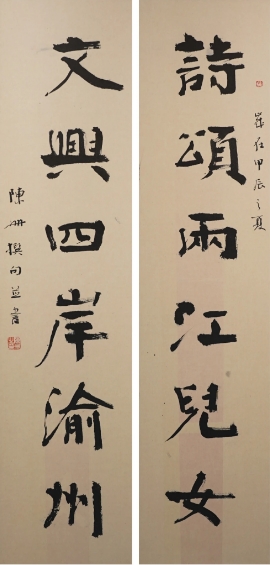 詩頌兩江兒女
歲在甲辰之夏
文興四岸渝州
陳冊撰句並書